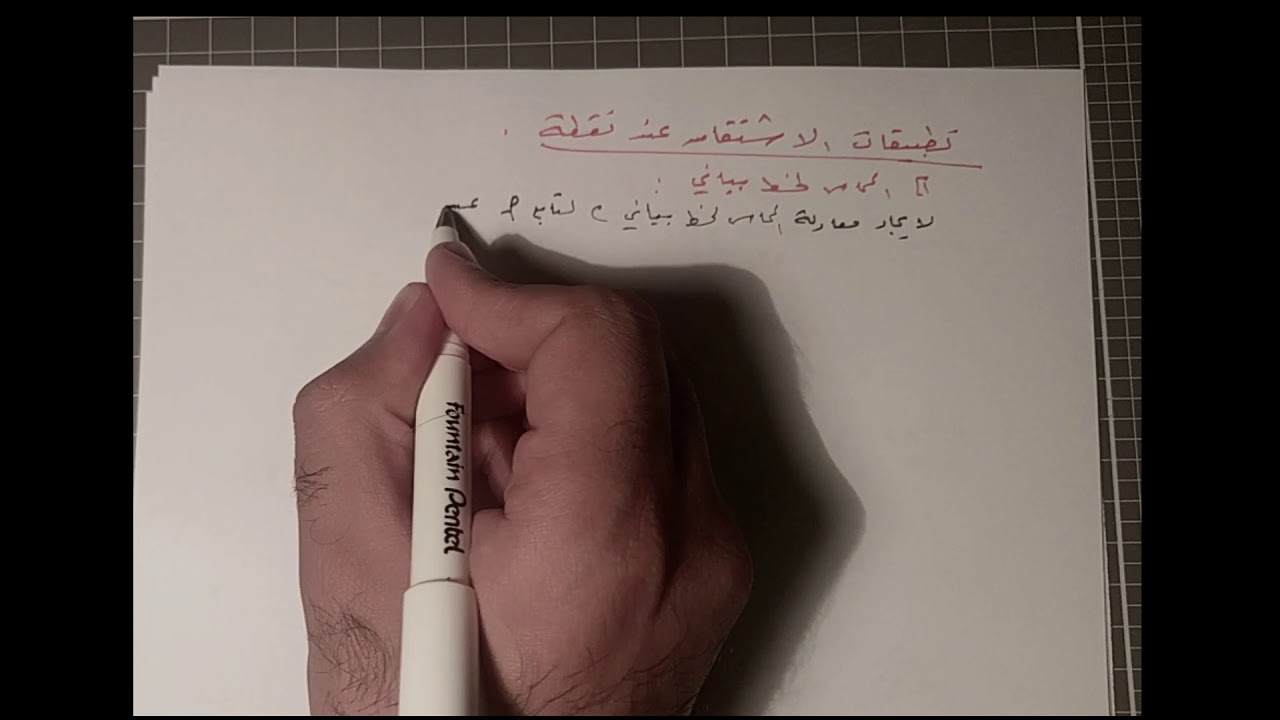 تطبيقات الاشتقاق عند نقطة .
المماس لخط بياني :
لايجاد معادلة المماس لخط بياني C لتابع f عند
Fountain Pentel